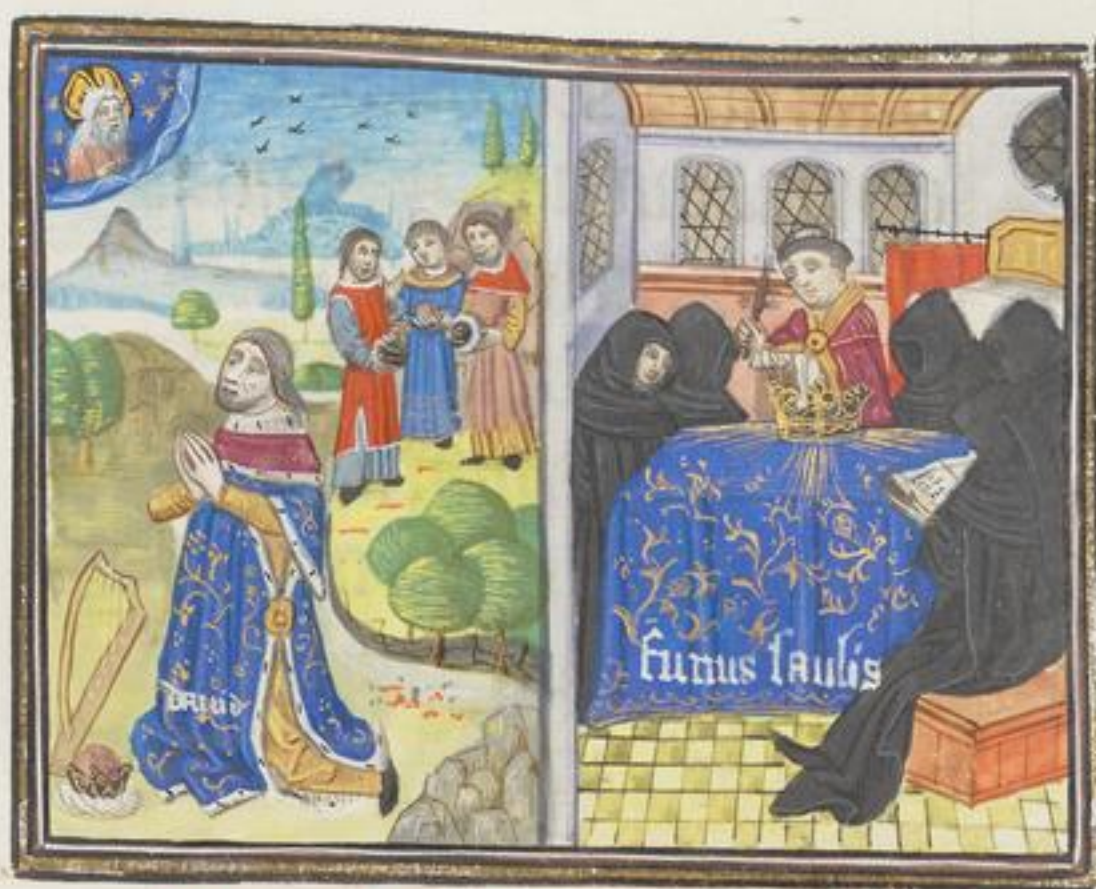 Dauid
funus saulis